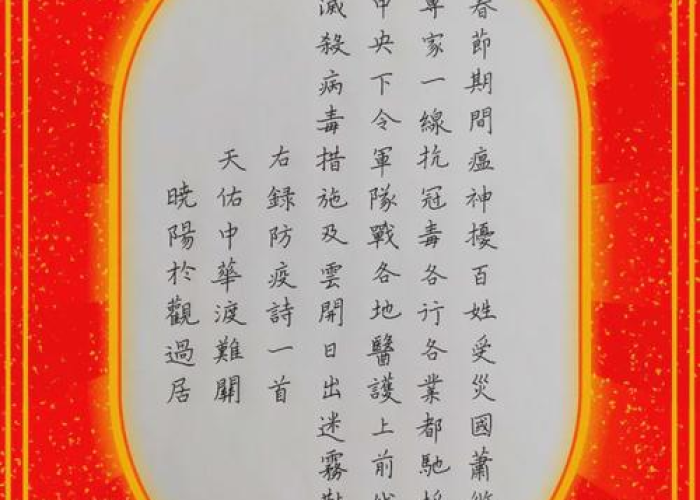 春節期間瘟神擾百姓受災國蕭
專家一線抗冠毒各行各業都馳
中央下令軍隊戰各地醫護上前
滅殺病毒措施及雲開日出迷霧
右錄防疫詩一首
天佑中華渡難關
曉陽於觀過居